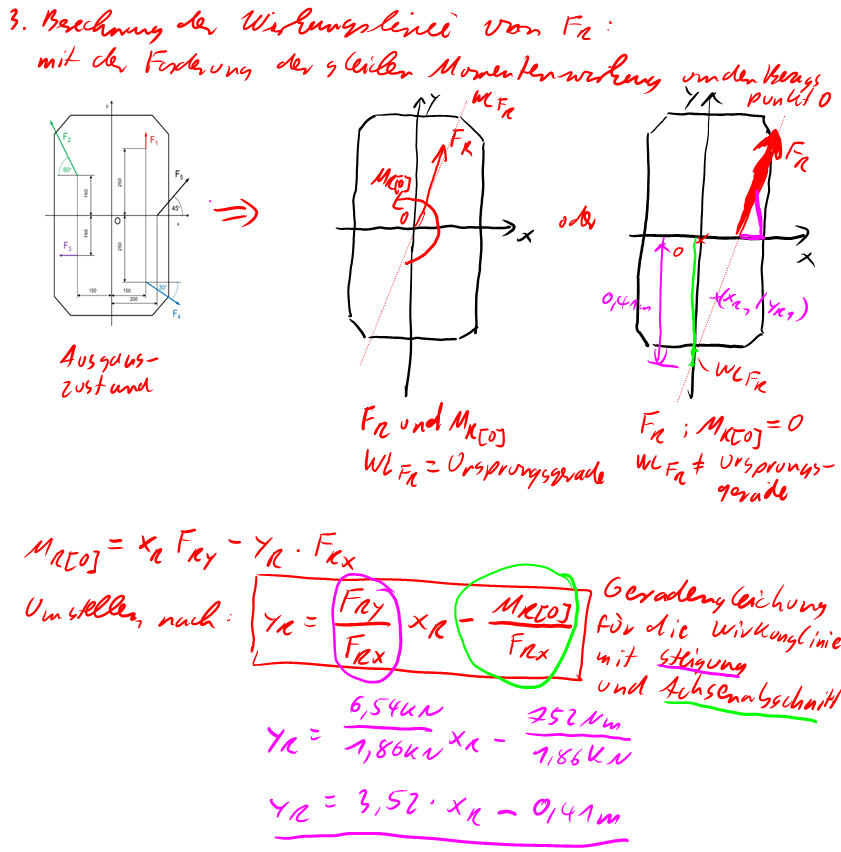 3. Berechnung der Wirkungslinie von FR:
mit der Forderung der gleichen Momentenwirkung um den Bezugs
punkt 0
y
F2
60°
F1
F5
45°
250
150
O
x
150
250
F3
30°
150
150
200
F4
Ausgangs-
zustand
⇒
y
WL FR
FR
MR[0]
0
x
FR und MR[0]
WL FR = Ursprungsgerade
oder
y
FR
0
x
0,41m
x(xR1 / yR1)
WL FR
FR ; MR[0] = 0
WL FR ≠ Ursprungs-
gerade
MR[0] = xR FRy - yR · FRx
Umstellen nach: yR = FRy/FRx xR - MR[0]/FRx
Geradengleichung
für die Wirkunglinie
mit steigung
und Achsenabschnitt
yR = 6,54kN/1,86kN xR - 752Nm/1,86kN
yR = 3,52 · xR - 0,41m